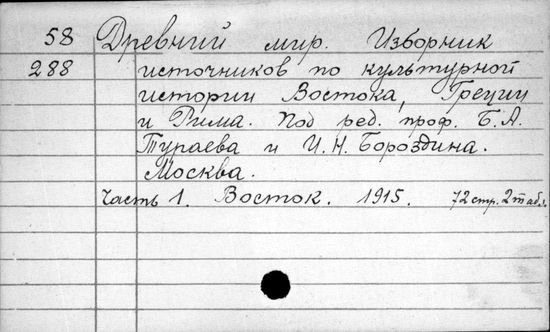 58 Древний мир. Изборник
288 источников по культурной
истории Востока, Греции
и Рима. Под ред. проф. Б. А.
Тураева и И. Н. Бороздина.
Москва.
Часть 1. Восток. 1915. 72 стр. 2 табл.